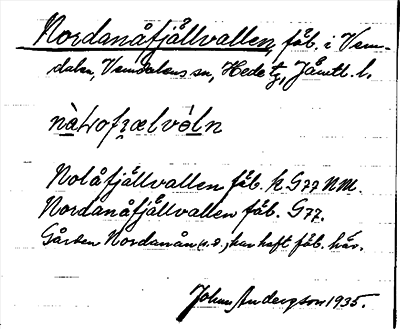 Nordanåfjällvallen, fäb. i Vem-
dalen, Vemdalens sn, Hede tg, Jämtl. l.
Nolåfjällvallen fäb. k G77 NM.
Nordanåfjällvallen fäb. G77.
Gården Nordanån (s.d.) har haft fäb. här.
Johan Anderson 1935.